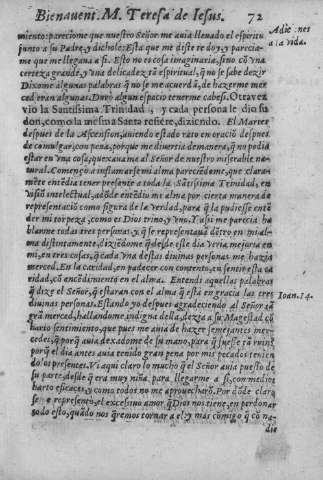 Bienauent. M. Teresa de Iesus. 72
Adic nes
a la vida.
miento: pareciome que nuestro Señor me auia llenado el espiritu
junto a su Padre, y dichole: Esta que me diste te doy, y parecia-
me que me llegaua a si. Esto no es cosa imaginaria, sino cõ vna
certeza grande, y vna delicadez tã espiritual, q̃ no se sabe dezir
Dixome algunas palabras q̃ no se me acuerdã, de hazerme mer
ced eran algunas. Duró algun espacio tenerme cabe si. Otra vez
vio la Santissima Trinidad, y cada persona le dio su
don, como la mesma Santa refiere, diziendo. El Martes
despues de la Ascension, auiendo estado rato en oraciõ despues
de comulgar, con pena, porque me diuertia de manera, q̃ no podia
estar en vna cosa, quexauame al Señor de nuestro miserable na-
tural. Començo a inflamarse mi alma pareciendome, que clara-
mẽte entẽdia tener presente a toda la Sãtissima Trinidad, en
visiõ intelectual, adõde entẽdiu mi alma por cierta manera de
representaciõ como figura de la verdad, para q̃ la pudiesse entẽ
der mi torpeza, como es Dios trino y vno. Y assi me parecia ha
blarme todas tres personas, y q̃ se representauã dẽtro en mi al-
ma distintamente, diziẽdome q̃ desde este dia veria mejoria en
mi, en tres cosas, q̃ cada vna destas diuinas personas me hazia
merced. En la caridad, en padecer con contento, en sentir esta ca
ridad, cõ encẽdimiento en el alma. Entendi aquellas palabras
q̃ dize el Señor, q̃ estaran con el alma q̃ està en gracia las tres
Ioan. 14.
diuinas personas. Estando yo despues agradeciendo al Señor tã
grã merced, hallandome indigna della, dezia a su Magestad cõ
harto sentimiento, que pues me auia de hazer semejantes mer-
cedes, q̃ porq̃ auia dexadome de su mano, para q̃ fuesse tã ruin;
porq̃ el dia antes auia tenido gran pena por mis pecados tenien
dolos presentes. Vi aqui claro lo mucho q̃ el Señor auia puesto de
su parte, desde q̃ era muy niña, para llegarme a si, con medios
harto eficaces, y como todos no me aprouecharõ. Por dõde claro
se me representò, el excessiuo amor q̃ Dios nos tiene, en perdonar
todo esto, quãdo nos q̃remos tornar a el, y mas cõmigo q̃ cõ na-
die